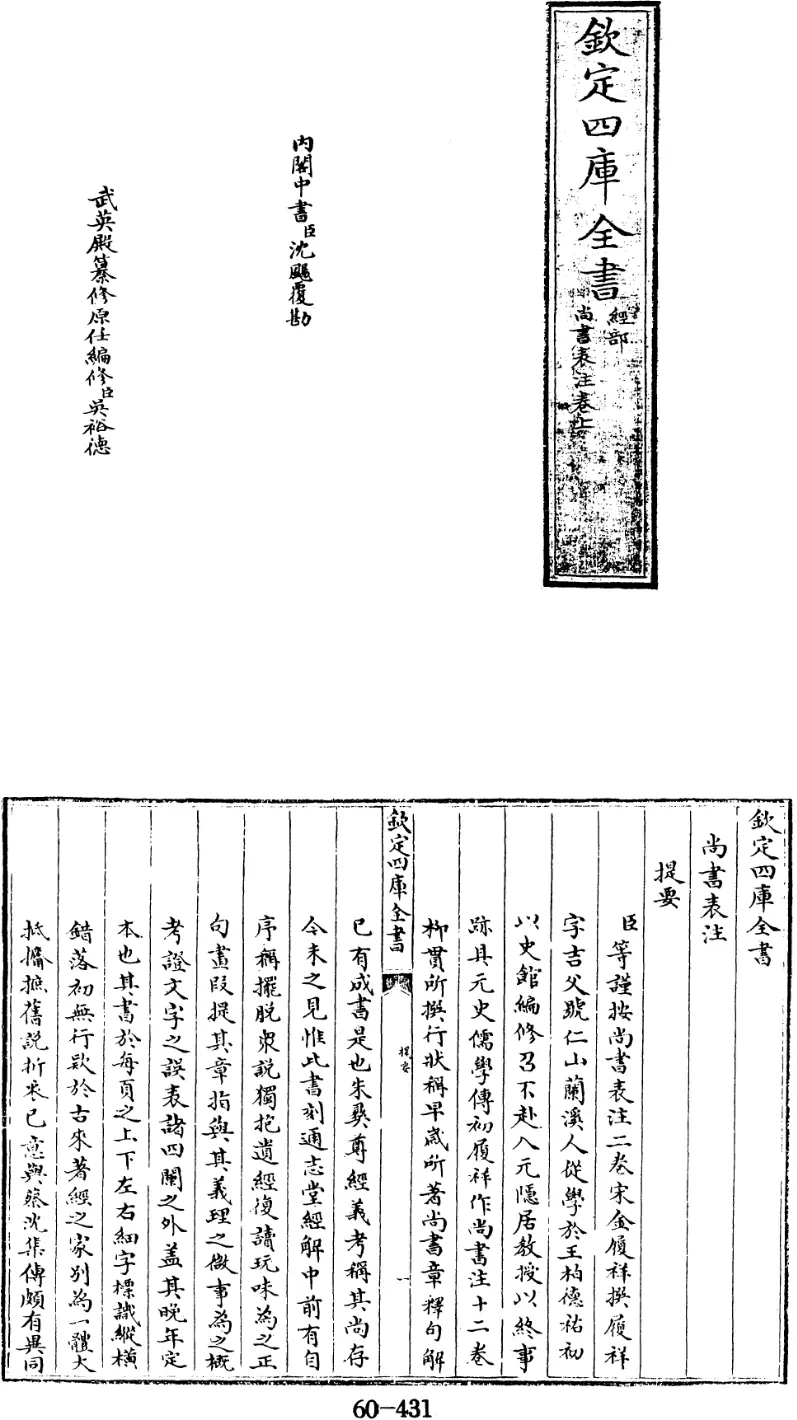 欽定四庫全書
經部
尚書表注卷上
內閣中書臣沈颺覆勘
武英殿纂修原任編修臣吳裕德
欽定四庫全書
尚書表注
提要
臣等謹按尚書表注二卷宋金履祥撰履祥
字吉父號仁山蘭溪人從學於王柏德祐初
以史館編修召不赴入元隱居教授以終事
跡具元史儒學傳初履祥作尚書注十二卷
柳貫所撰行狀稱早歲所著尚書章釋句解
欽定四庫全書
提要
一
已有成書是也朱彝尊經義考稱其尚存
今未之見惟此書刻通志堂經解中前有自
序稱擺脫衆說獨抱遺經復讀玩味為之正
句畫段提其章指與其義理之微事為之概
考證文字之誤表諸四闌之外蓋其晚年定
本也其書於每頁之上下左右細字標識縱橫
錯落初無行欵於古來著經之家別為一體大
抵攟摭舊說折衷己意與蔡沈集傳頗有異同
60-431